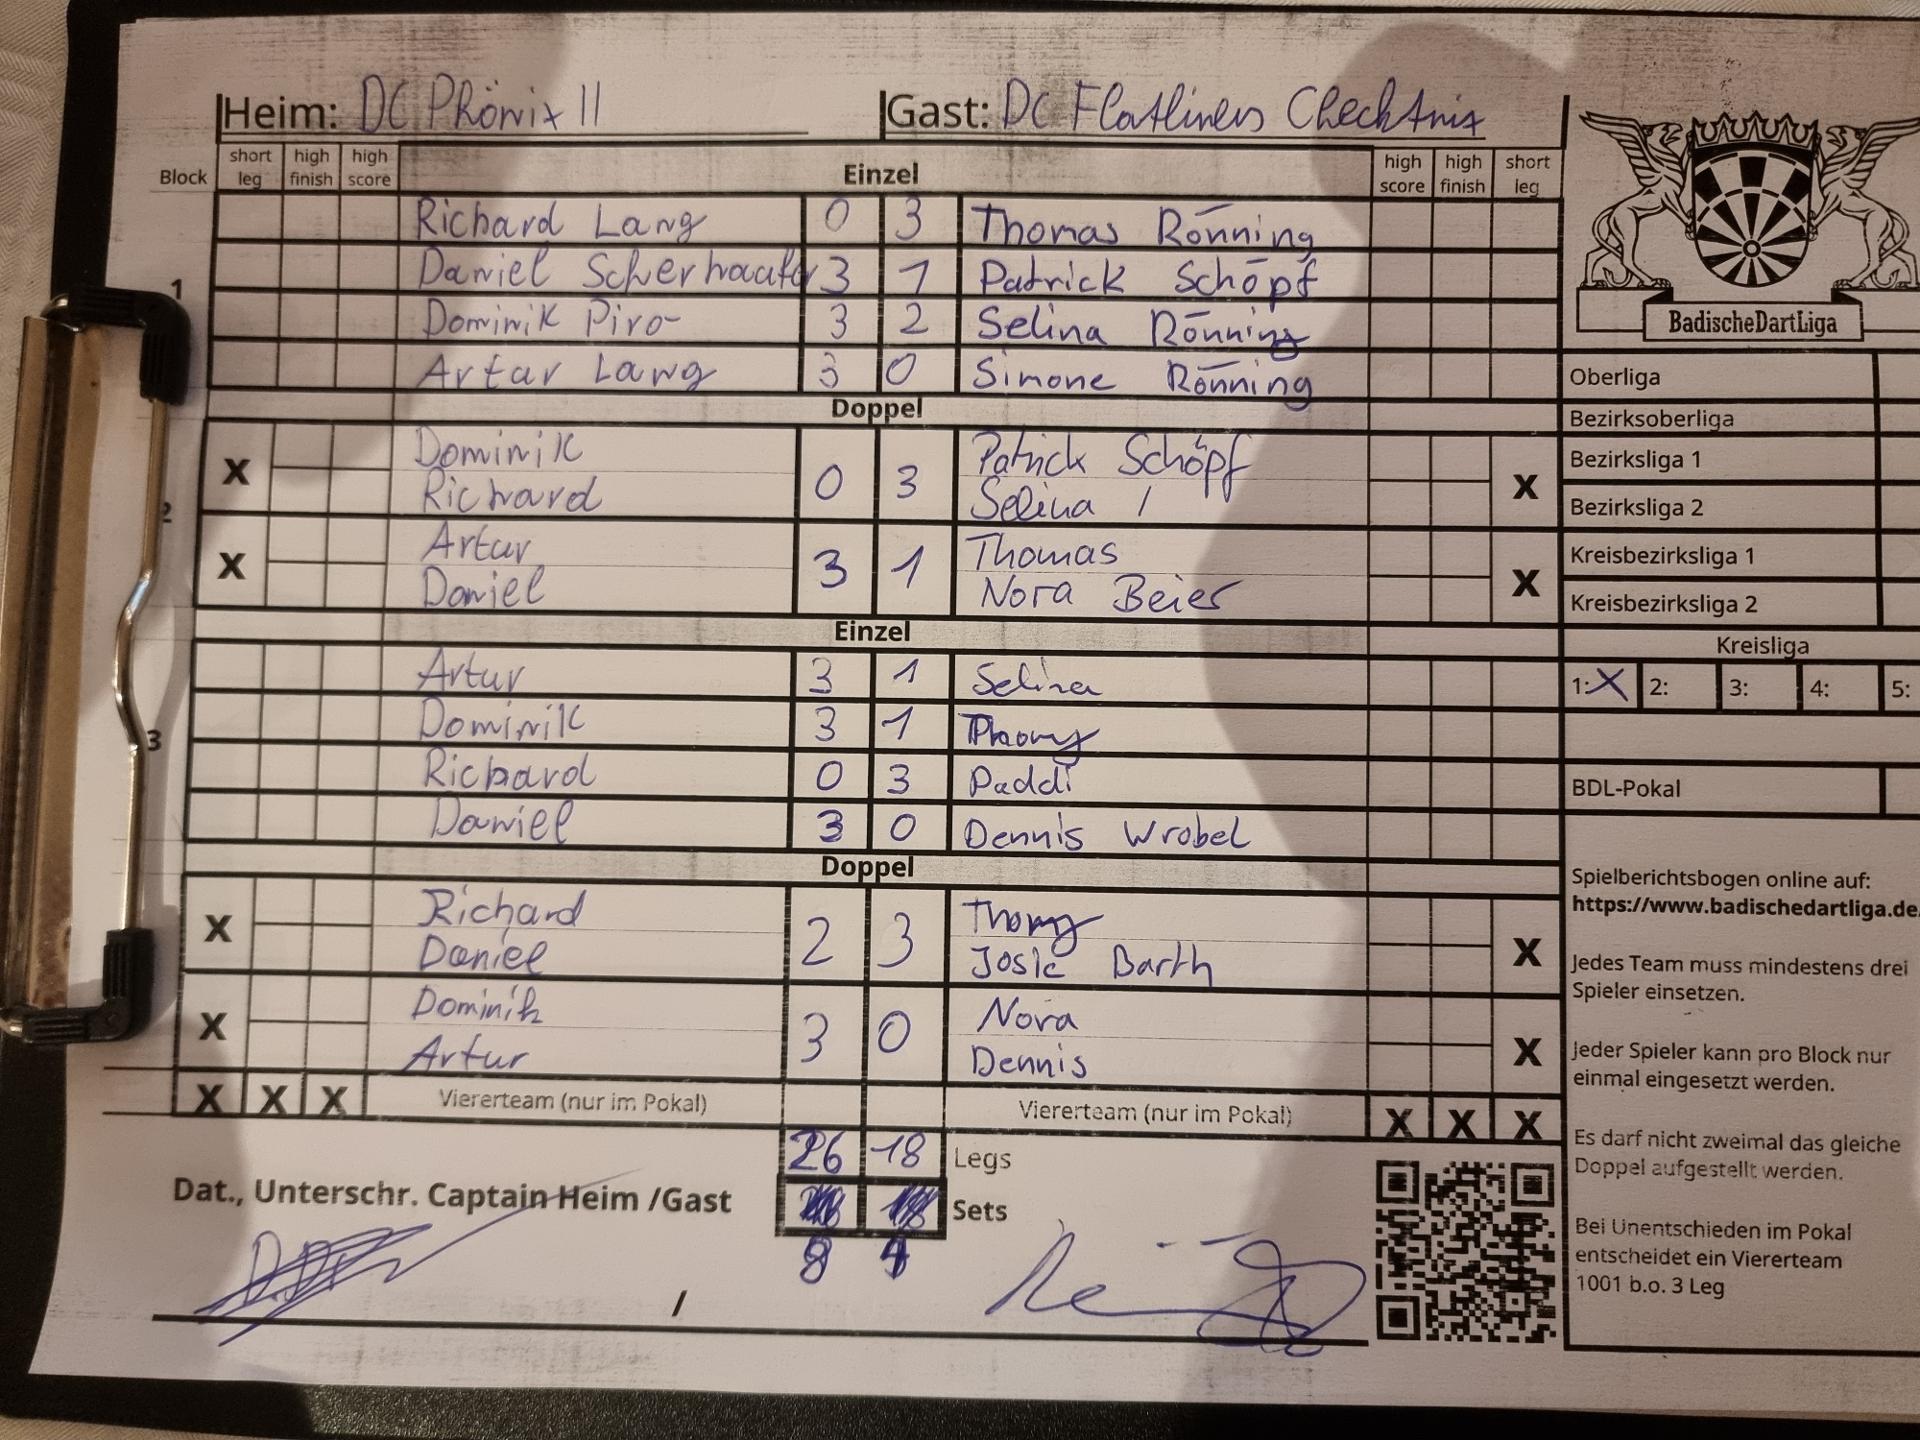 Heim: DC Phönix II Gast: DC Flatliners Checktnix
Block short leg high finish high score Einzel high score high finish short leg
Richard Lang 0 3 Thomas Rönning
1 Daniel 3 1 Patrick Schöpf
Dominik Piro 3 2 Selina Rönning
Artur Lang 3 0 Simone Rönning
Doppel
X Dominik 0 3 Patrick Schöpf X
Richard Selina /
2
X Artur 3 1 Thomas X
Daniel Nora Beier
Einzel
Artur 3 1 Selina
Dominik 3 1 Thomy
3
Richard 0 3 Paddi
Daniel 3 0 Dennis Wrobel
Doppel
X Richard 2 3 Thomy X
Daniel Josie Barth
X Dominik 3 0 Nora X
Artur Dennis
X X X Viererteam (nur im Pokal) Viererteam (nur im Pokal) X X X
26 18 Legs
Dat., Unterschr. Captain Heim /Gast Sets
8 4
/
BadischeDartLiga
Oberliga
Bezirksoberliga
Bezirksliga 1
Bezirksliga 2
Kreisbezirksliga 1
Kreisbezirksliga 2
Kreisliga
1: X 2: 3: 4: 5:
BDL-Pokal
Spielberichtsbogen online auf:
https://www.badischedartliga.de
Jedes Team muss mindestens drei
Spieler einsetzen.
Jeder Spieler kann pro Block nur
einmal eingesetzt werden.
Es darf nicht zweimal das gleiche
Doppel aufgestellt werden.
Bei Unentschieden im Pokal
entscheidet ein Viererteam
1001 b.o. 3 Leg